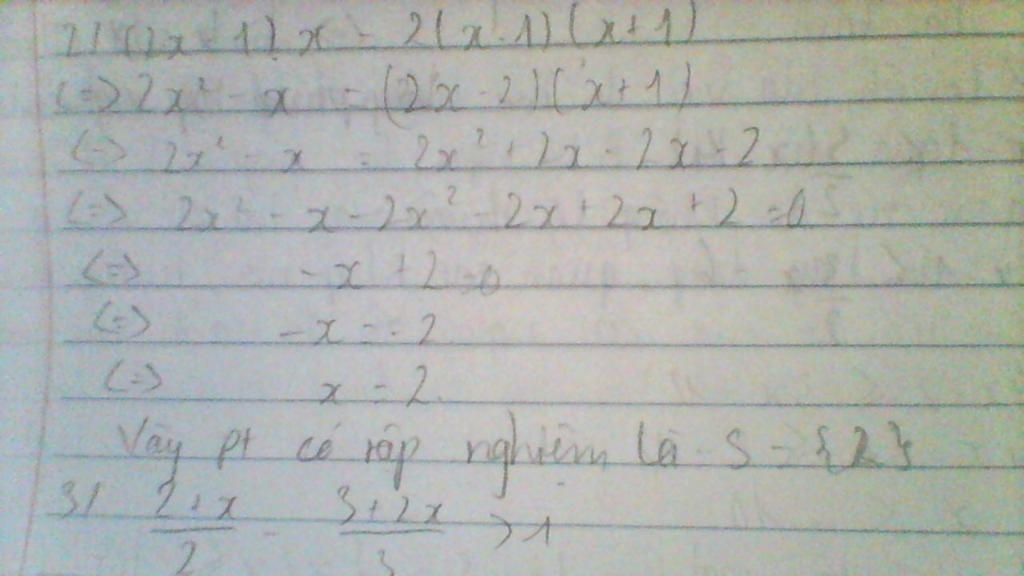 2/ (2x - 1).x = 2(x-1)(x+1)
(=) 2x² - x = (2x-2)(x+1)
(=) 2x² - x = 2x² + 2x - 2x - 2
(=) 2x² - x - 2x² - 2x + 2x + 2 = 0
(=) -x + 2 = 0
(=) -x = -2
(=) x = 2
Vậy pt có tập nghiệm là S = {2}
3/ (2+x)/2 - (3+2x)/3 > 1